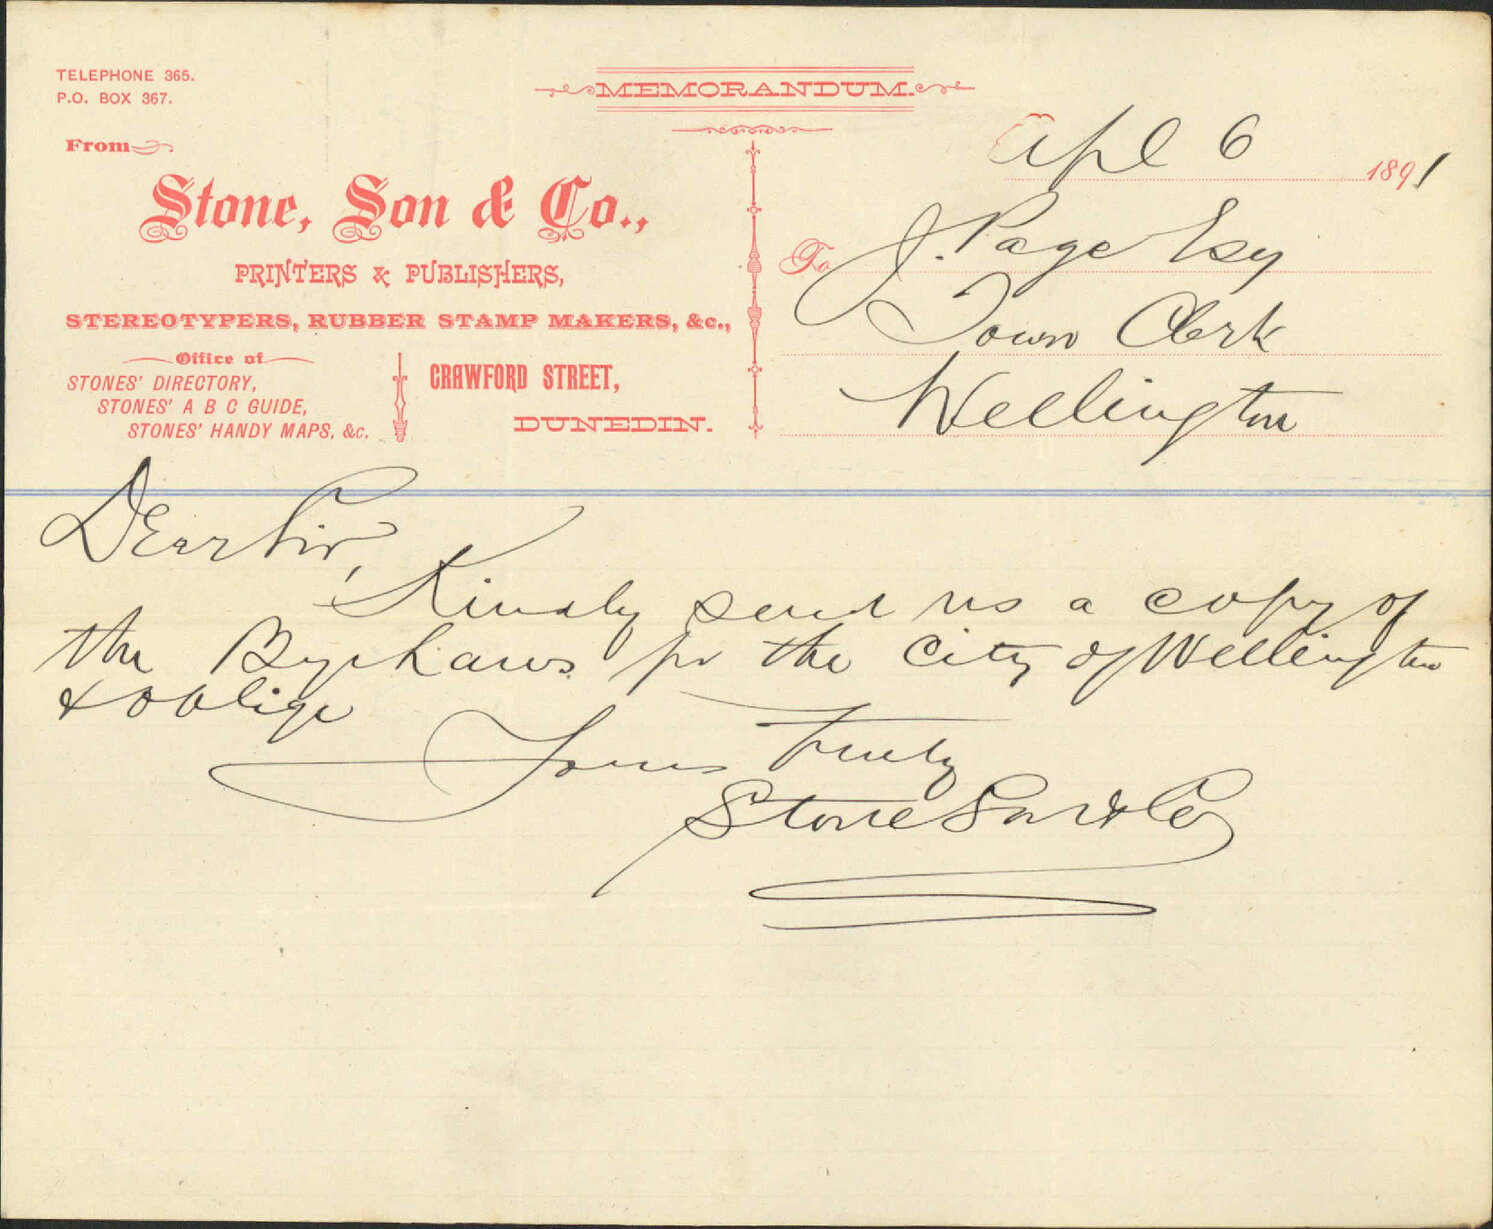 TELEPHONE 365.
P.O. BOX 367.
MEMORANDUM.
From
Stone, Son & Co.,
PRINTERS & PUBLISHERS,
STEREOTYPERS, RUBBER STAMP MAKERS, &c.,
Office of
STONES' DIRECTORY,
STONES' A B C GUIDE,
STONES' HANDY MAPS, &c.
CRAWFORD STREET,
DUNEDIN.
Apl 6 1891
To J. Page Esq
Town Clerk
Wellington
Dear Sir,
Kindly send us a copy of
the Bye Laws for the City of Wellington
& oblige
Yours Truly
Stone Son & Co